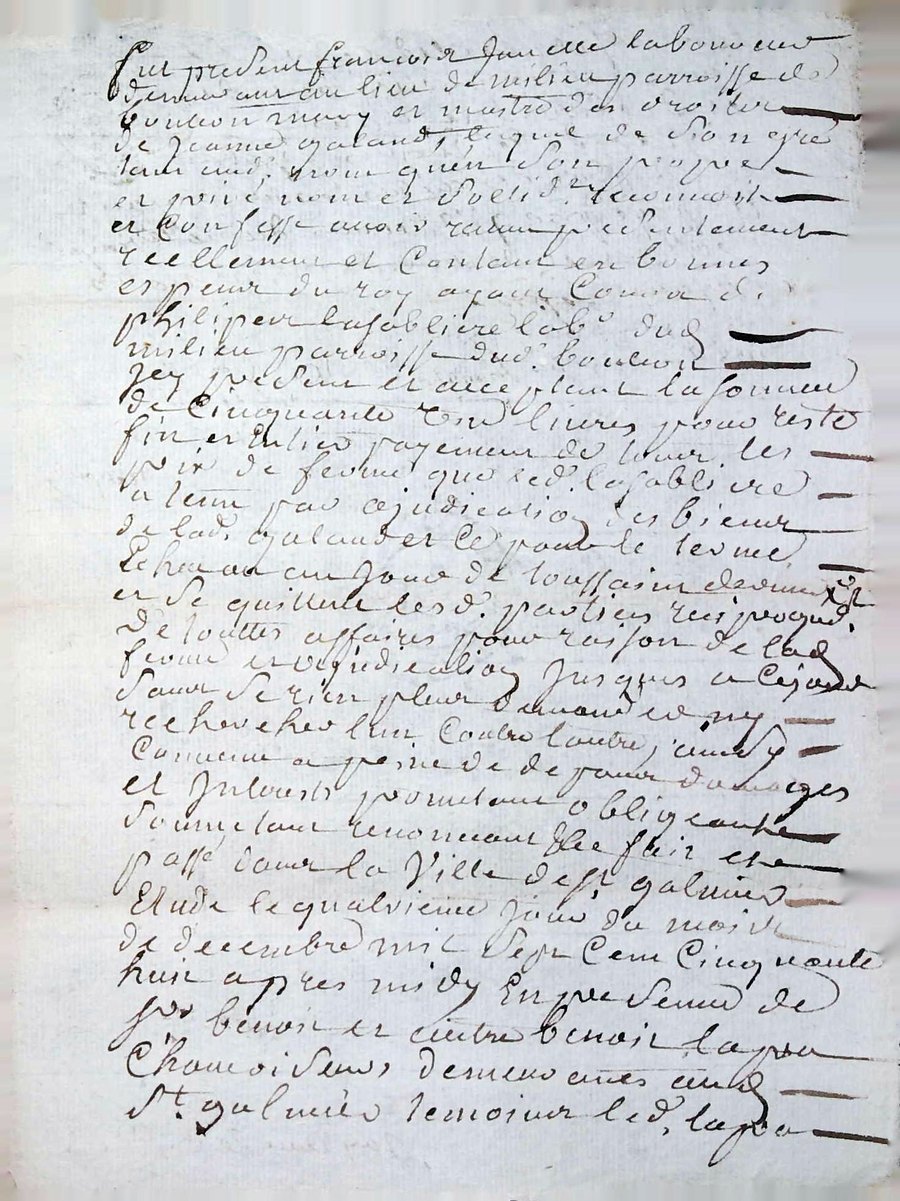 fut present françois Janette laboureur
demeurant au lieu de milieu parroisse de
bouteon mary et maitre des droits
de jeanne galand, lequel de son gré
tant aud. nom quen son propre
et privé nom et solid.r reconnoit
et Confesse avoir recu presentement
reellement et Contant en bonnes
espeus du roy ayant Cours d.
philipert lasabliere lab.r dud
milieu parroisse dud. bouteon
Jcy present et acceptant la somme
de Cinquante une livres pour reste
fin et Entier payement de tous les
prix de ferme que led. lasabliere
a tenu par ajudication des biens
de lad. galand et Ce pour le terme
Echeu au jour de toussaint dernier
et se quittent lesd. parties reciproqu.
de touttes affaires pour raison de lad
ferme et adjudication Jusques a Cejour
sans se rien plus demander ny
rechercher lun Contre lautre, ainsy
Convenu a peine de de tous domages
et Jnterests promettant obligeant
soumetant renonceant &ce fait et
passé dans la Ville de st galmier
Etude le quatrieme jour du mois
de decembre mil sept Cent Cinquante
huit apres midy En presence de
sr benoit et autre benoit lapra
Chamoiseurs demeurants aud
St. galmier temoins led. lapra